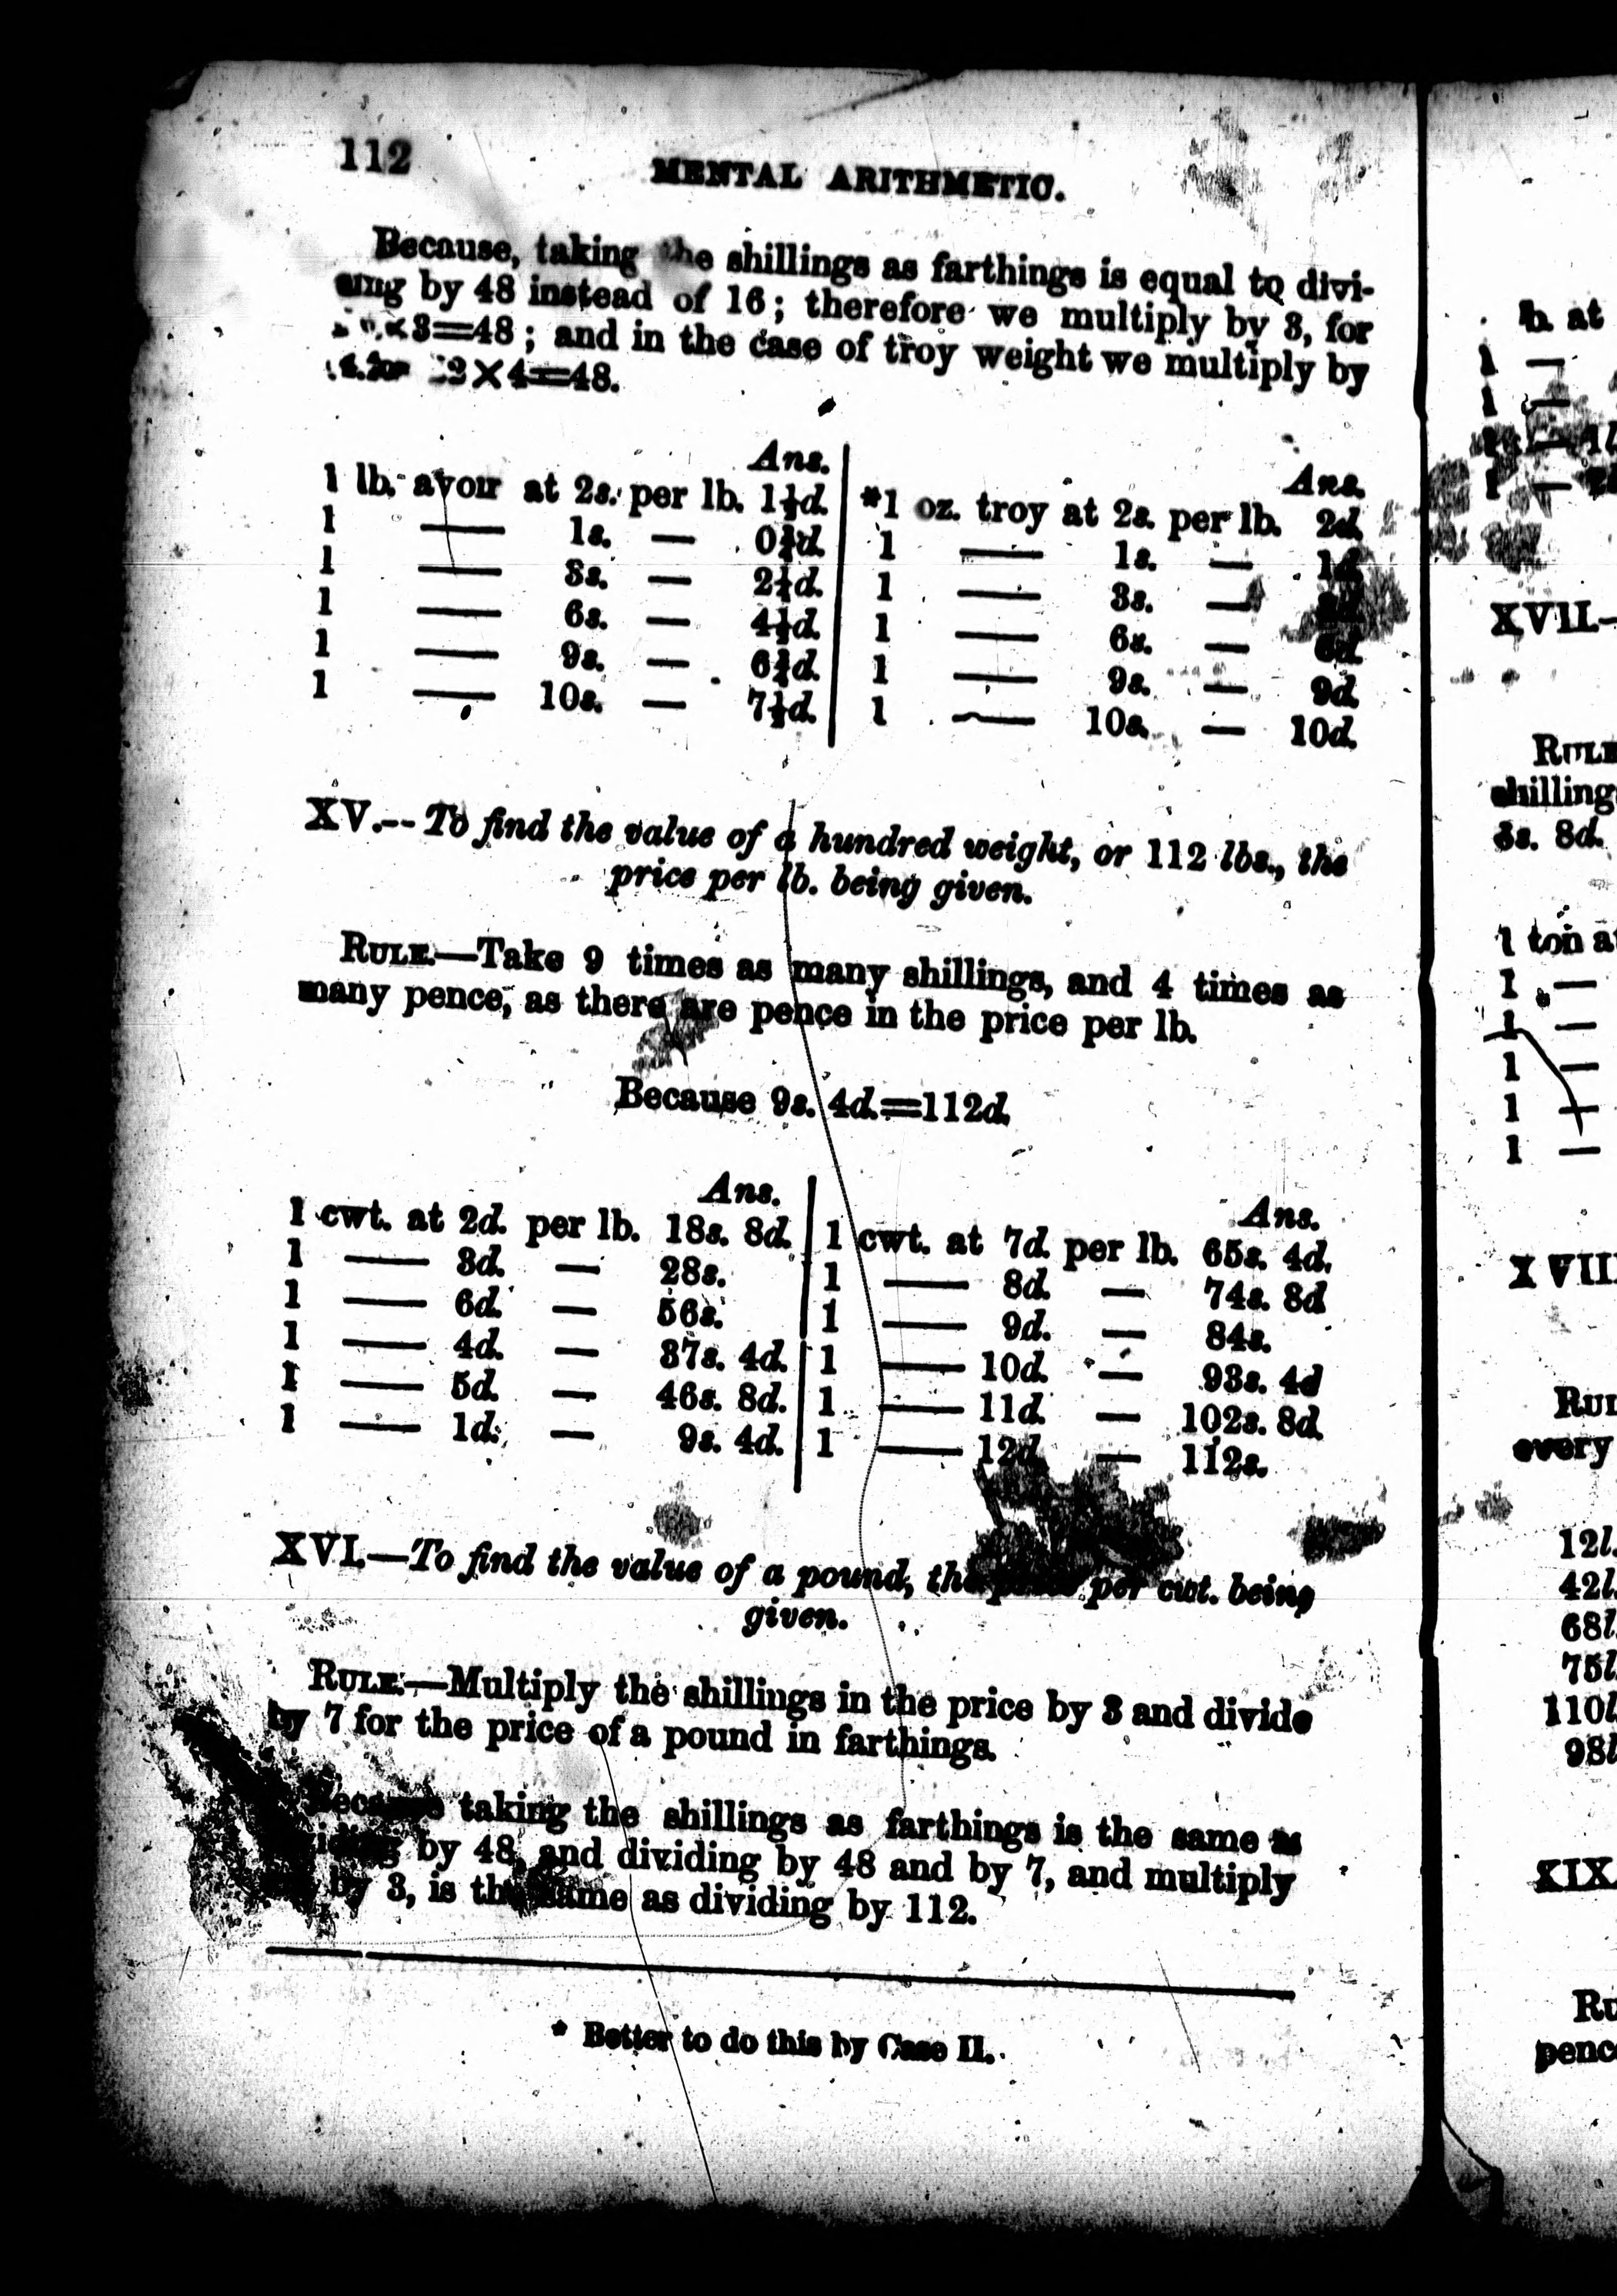 112
MENTAL ARITHMETIC.
Because, taking the shillings as farthings is equal to divi-
ding by 48 instead of 16; therefore we multiply by 3, for
×3=48; and in the case of troy weight we multiply by
×4=48.
Ans.
1 lb. avoir at 2s. per lb. 1½d.
1 — 1s. — 0¾d.
1 — 3s. — 2¼d.
1 — 6s. — 4½d.
1 — 9s. — 6¾d.
1 — 10s. — 7½d.
Ans.
*1 oz. troy at 2s. per lb. 2d.
1 — 1s. — 1d.
1 — 3s. —
1 — 6s. — 6d.
1 — 9s. — 9d.
1 — 10s. — 10d.
XV.—To find the value of a hundred weight, or 112 lbs., the
price per lb. being given.
RULE.—Take 9 times as many shillings, and 4 times as
many pence, as there are pence in the price per lb.
Because 9s. 4d.=112d.
Ans.
1 cwt. at 2d. per lb. 18s. 8d.
1 — 3d. — 28s.
1 — 6d. — 56s.
1 — 4d. — 37s. 4d.
1 — 5d. — 46s. 8d.
1 — 1d. — 9s. 4d.
Ans.
1 cwt. at 7d. per lb. 65s. 4d.
1 — 8d. — 74s. 8d
1 — 9d. — 84s.
1 — 10d. — 93s. 4d
1 — 11d. — 102s. 8d.
1 — 12d. — 112s.
XVI.—To find the value of a pound, the price per cwt. being
given.
RULE.—Multiply the shillings in the price by 3 and divide
by 7 for the price of a pound in farthings.
Because taking the shillings as farthings is the same as
dividing by 48, and dividing by 48 and by 7, and multiply
by 3, is the same as dividing by 112.
* Better to do this by Case II.
lb. at
1 —
1 —
1 —
XVII.—
RULE
shillings
3s. 8d.
1 ton at
1 —
1 —
1 —
1 —
1 —
XVIII
RUL
every
12l.
42l.
68l.
75l.
110l.
98l.
XIX.
RU
pence